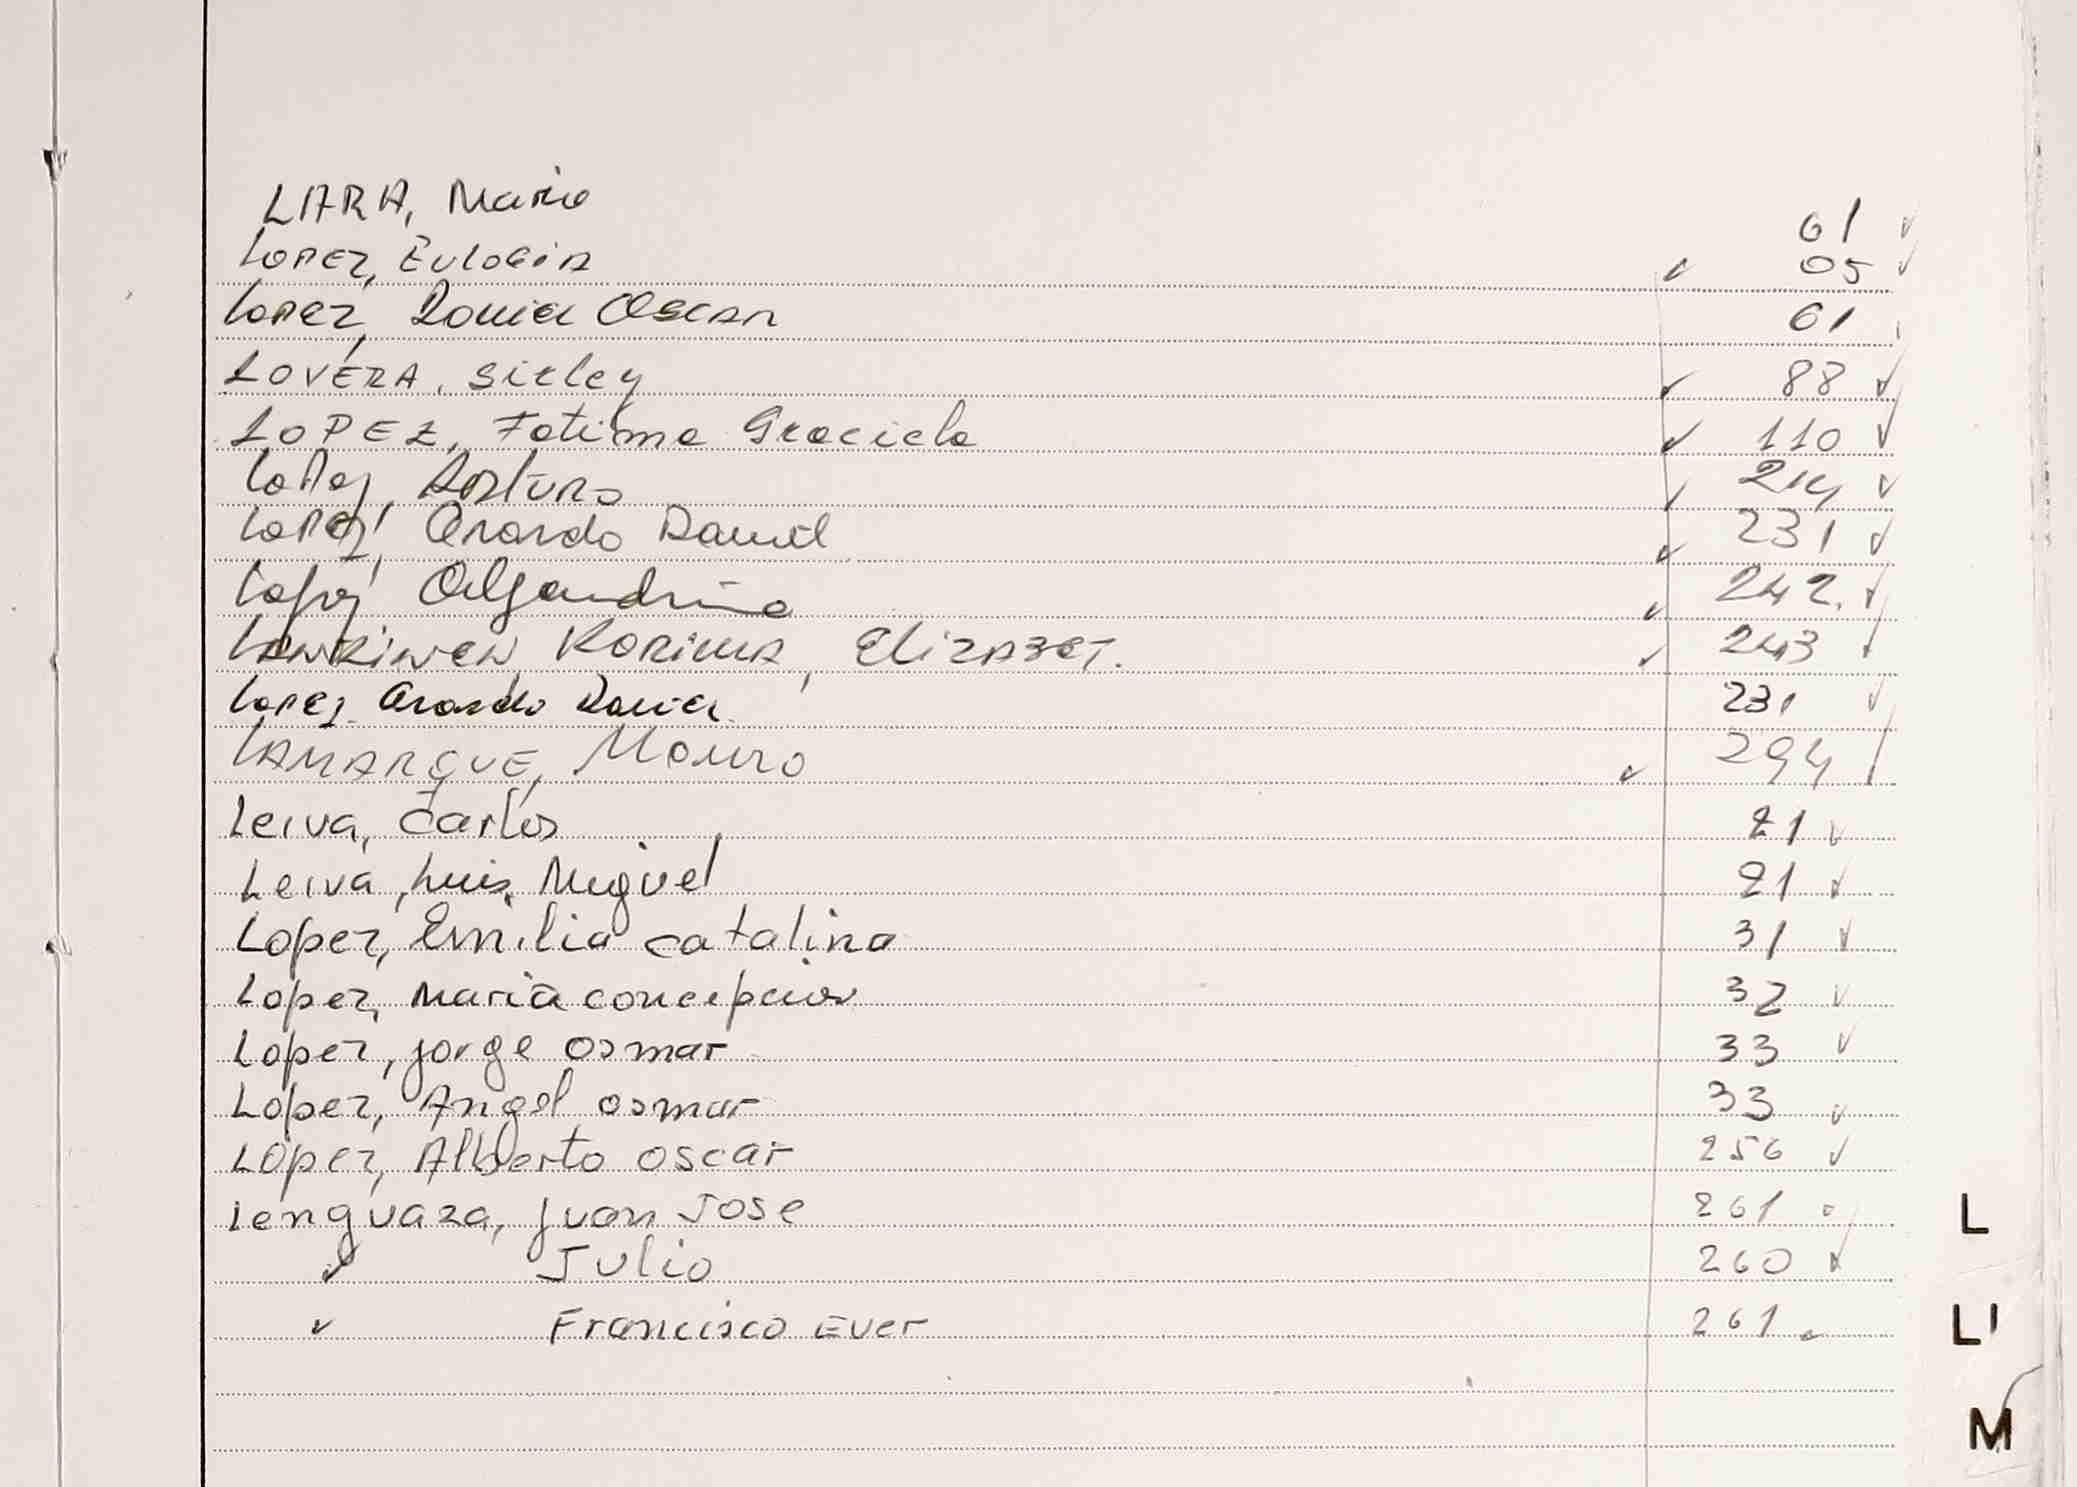 LARA, Mario 61
Lopez, Eulogia 05
Lopez, Daniel Oscar 61
LOVERA, Sirley 88
LOPEZ, Fatima Graciela 110
Lopez, Arturo 214
Lopez, Orardo Daniel 231
Lopez, Alejandrina 242.
Karina, Elizabet. 243
Lopez Orardo Daniel 231
LAMARQUE, Mauro 294
Leiva, Carlos 21
Leiva, Luis Miguel 21
Lopez, Emilia Catalina 31
Lopez, Maria concepcion 32
Lopez, jorge osmar 33
Lopez, Angel osmar 33
Lopez, Alberto oscar 256
Lenguaza, Juan Jose 261
L
✓ Julio 260
✓ Francisco Ever 261
LI
M